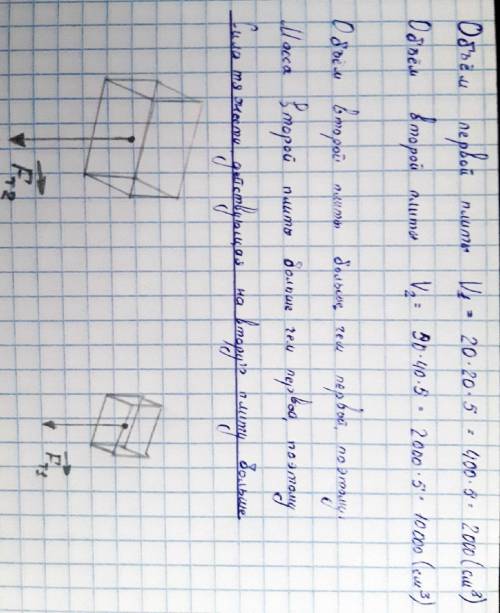 Объём первой плиты V₁ = 20·20·5 = 400·5 = 2000 (см³)
Объём второй плиты V₂ = 50·40·5 = 2000·5 = 10000 (см³)
Объём второй плиты больше, чем первой, поэтому
Масса второй плиты больше чем первой, поэтому
Сила тяжести действующая на вторую плиту больше
Fт2
Fт1